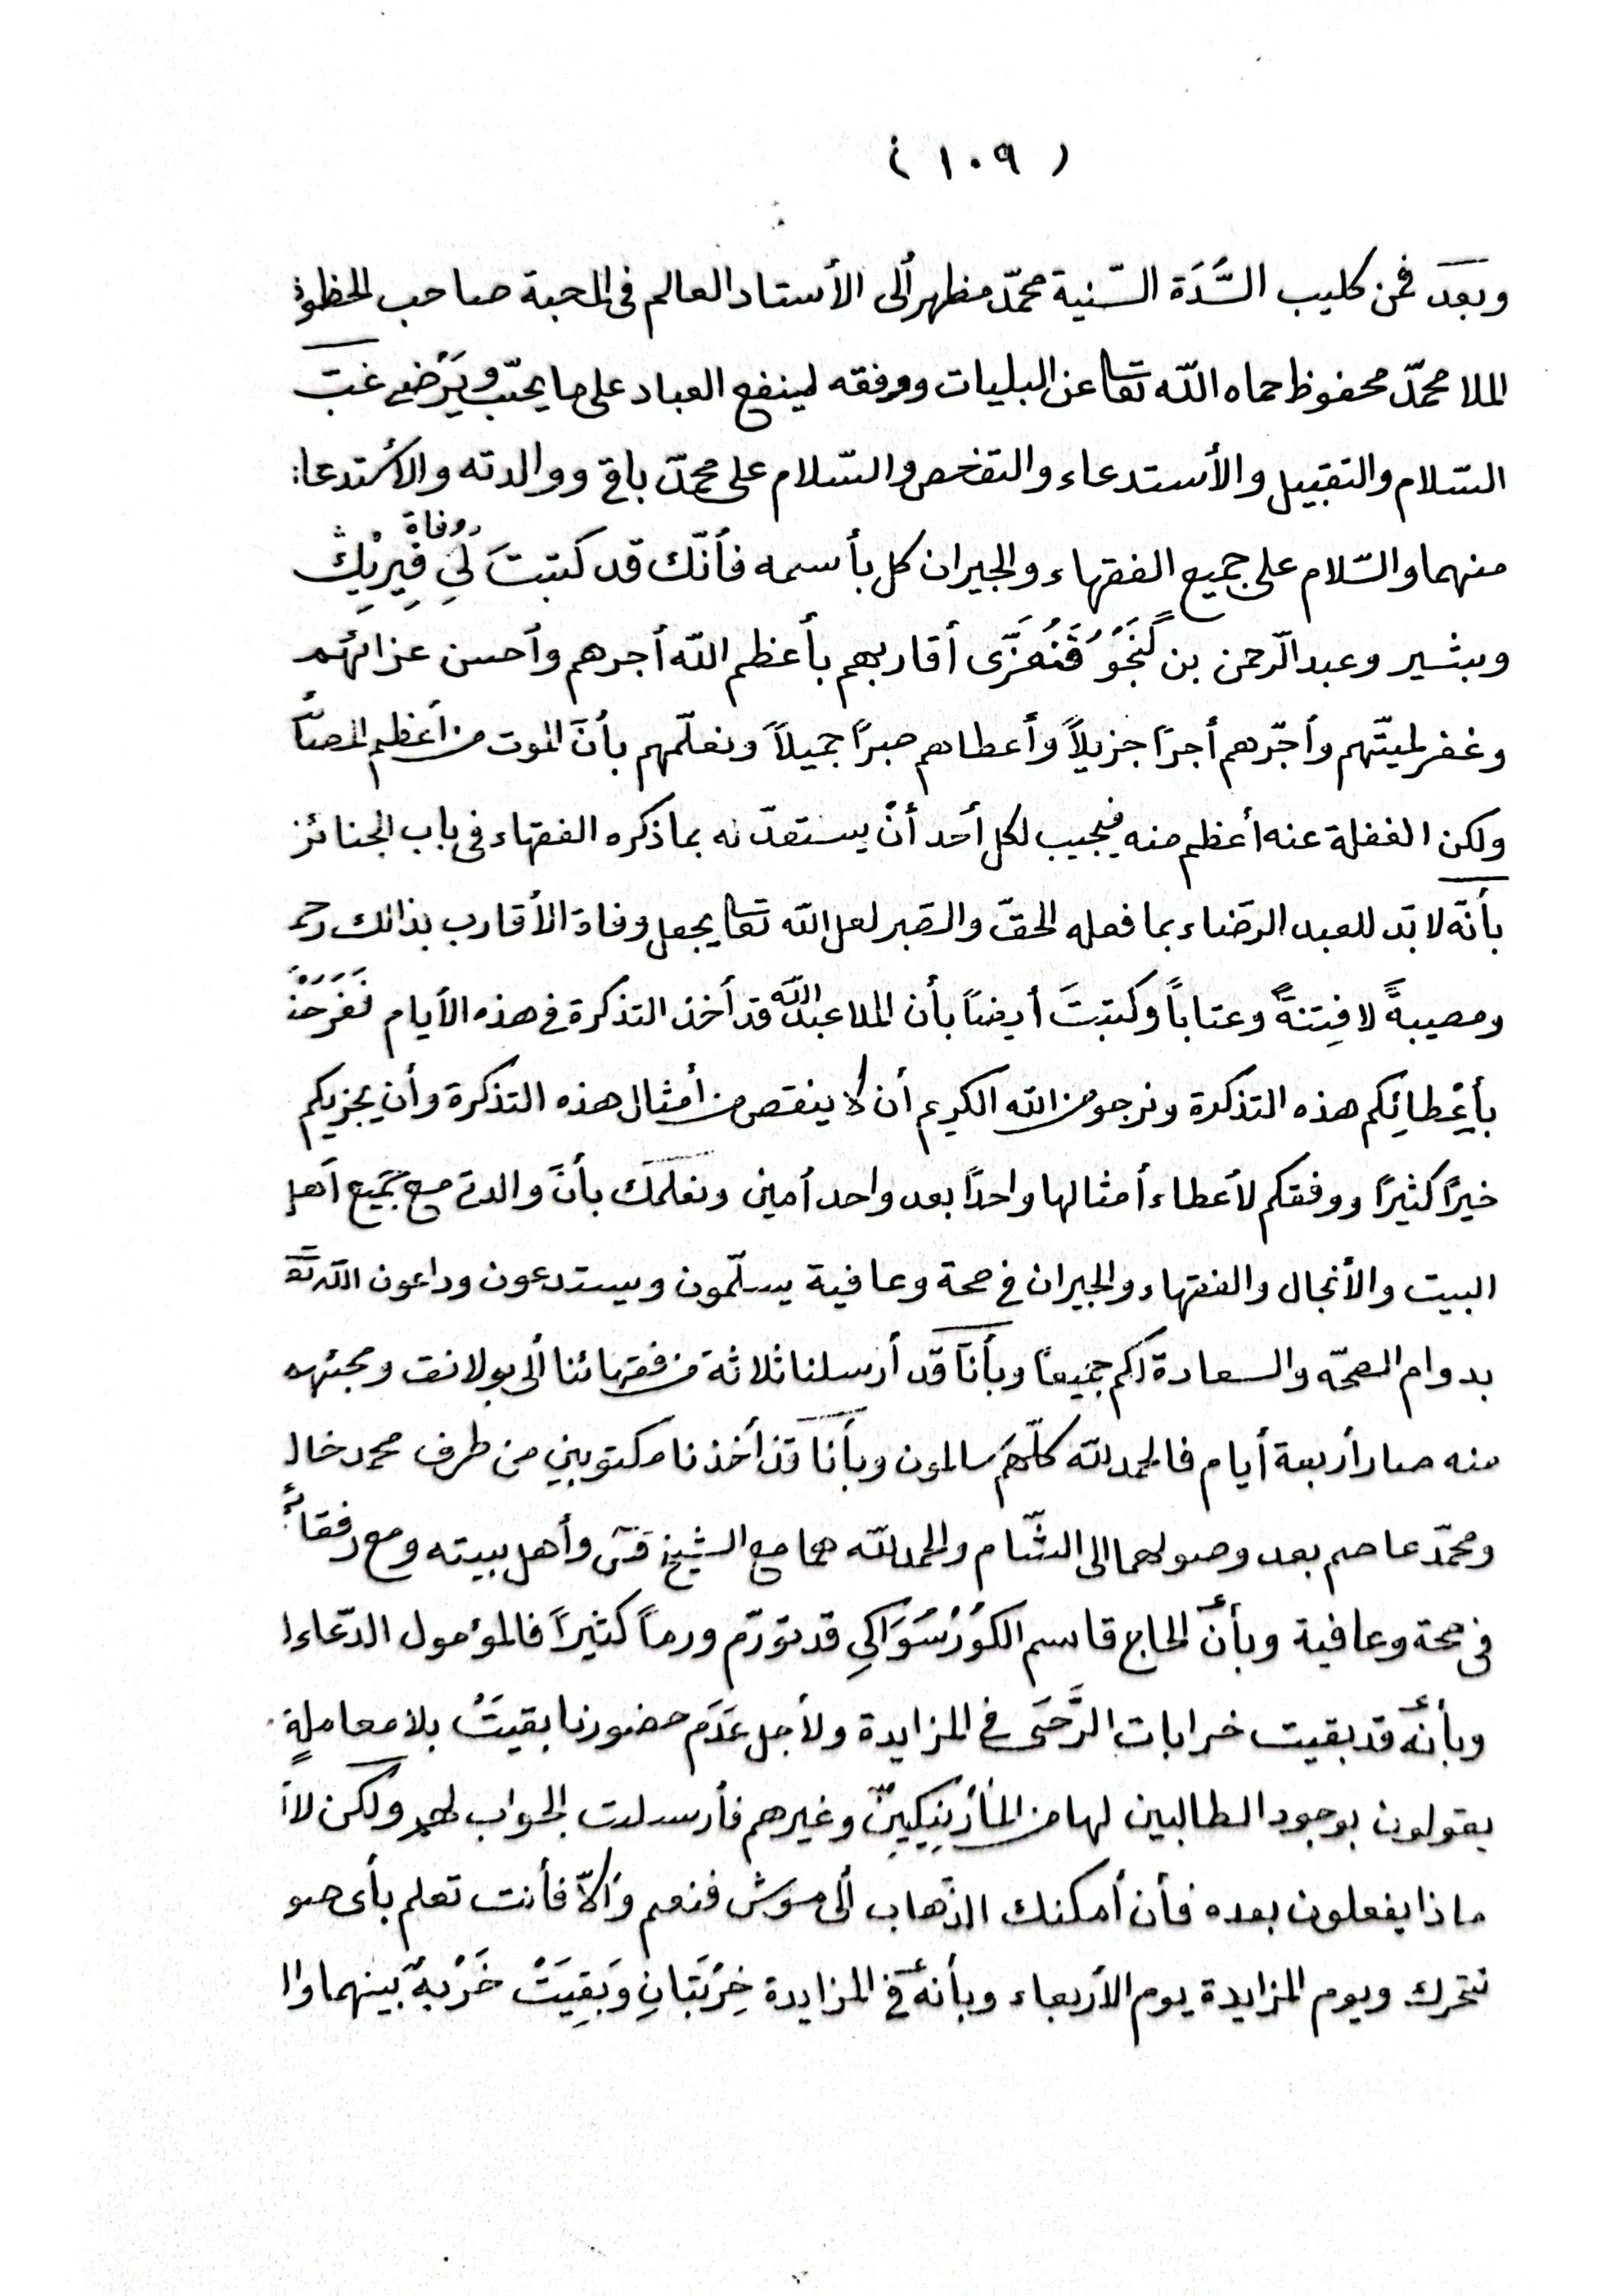 ( ١٠٩ )
وبعد فمن كليب السَّدَة السّنية محمّد مظهر ألى الأستاد العالم فى المحبة صاحب الحظوظ
الملا محمّد محفوظ حماه اللّه تعا عن البليات ووفقه لينفع العباد على ما يحبّ ويَرْضى غبّ
السّلام والتقبيل والأستدعاء والتفخص والسّلام على محمّد باقى ووالدته والأستدعاء
منهما والسّلام على جميع الفقهاء والجيران كل بأسمه فأنّك قد كتبتَ لِى وفاة فِيرِيْك
وبشير وعبد الرّحمن بن گَنْجَوُ فَنُعَزّى أقاربهم بأعظم اللّه أجرهم وأحسن عزائهم
وغفر لميتّهم وأجّرهم أجرًا جزيلاً وأعطاهم صبرًا جميلاً ونعلّمهم بأنّ الموت من أعظم المصائب
ولكن الغفلة عنه أعظم منه فيجيب لكل أحد أنْ يستعدّ له بما ذكره الفقهاء فى باب الجنائز
بأنّه لا بدّ للعبد الرضاء بما فعله الحقّ والصبر لعل اللّه تعا يجعل وفاة الأقارب بذالك رحمة
ومصيبةً لا فِتنةً وعتاباً وكتبتَ أيضاً بأن الملا عبد اللّه قد أخذ التذكرة فى هذه الأيام فَفَرَحْنَا
بأعْطائِكم هذه التذكرة ونرجو من اللّه الكريم أن لا ينقص من أمثال هذه التذكرة وأن يجزيكم
خيرًا كثيرًا ووفقكم لأعطاء أمثالها واحدًا بعد واحد أمين ونعلمك بأنّ والدتى مع جميع أهل
البيت والأنجال والفقهاء والجيران فى صحة وعافية يسلّمون ويستدعون وداعون اللّه تع
بدوام الصحّه والسعادة لكم جميعًا وبأنّا قد أرسلنا ثلاثة من فقهائنا ألى بولانق ومجئهم
منه صار أربعة أيام فالحمد للّه كلّهم سالمون وبأنا قد أخذنا مكتوبينِ من طرف محمد خالد
ومحمّد عاصم بعد وصولهما الى الشّام والحمد للّه هما مع الشيخ قس وأهل بيته ومع رفقائهم
فى صحة وعافية وبأنّ الحاج قاسم الكوُرْسُوَاكِى قد تورّم ورماً كثيرًا فالمؤمول الدّعاء له
وبأنّه قد بقيت خرابات الرَّحَى فى المزايدة ولأجل عَدَم حضورنا بقيتْ بلا معاملةٍ
يقولون بوجود الطالبين لها من المأزنِيكِيّن وغيرهم فأرسلت الجواب لهم ولكن لا
ماذا يفعلون بعده فأن أمكنك الذّهاب ألى موش فنعم وألاّ فأنت تعلم بأى صو
نتحرك ويوم المزايدة يوم الأربعاء وبأنه فى المزايدة خِرْبَتانِ وَبَقِيَتْ خَرْبةٌ بينهما وا